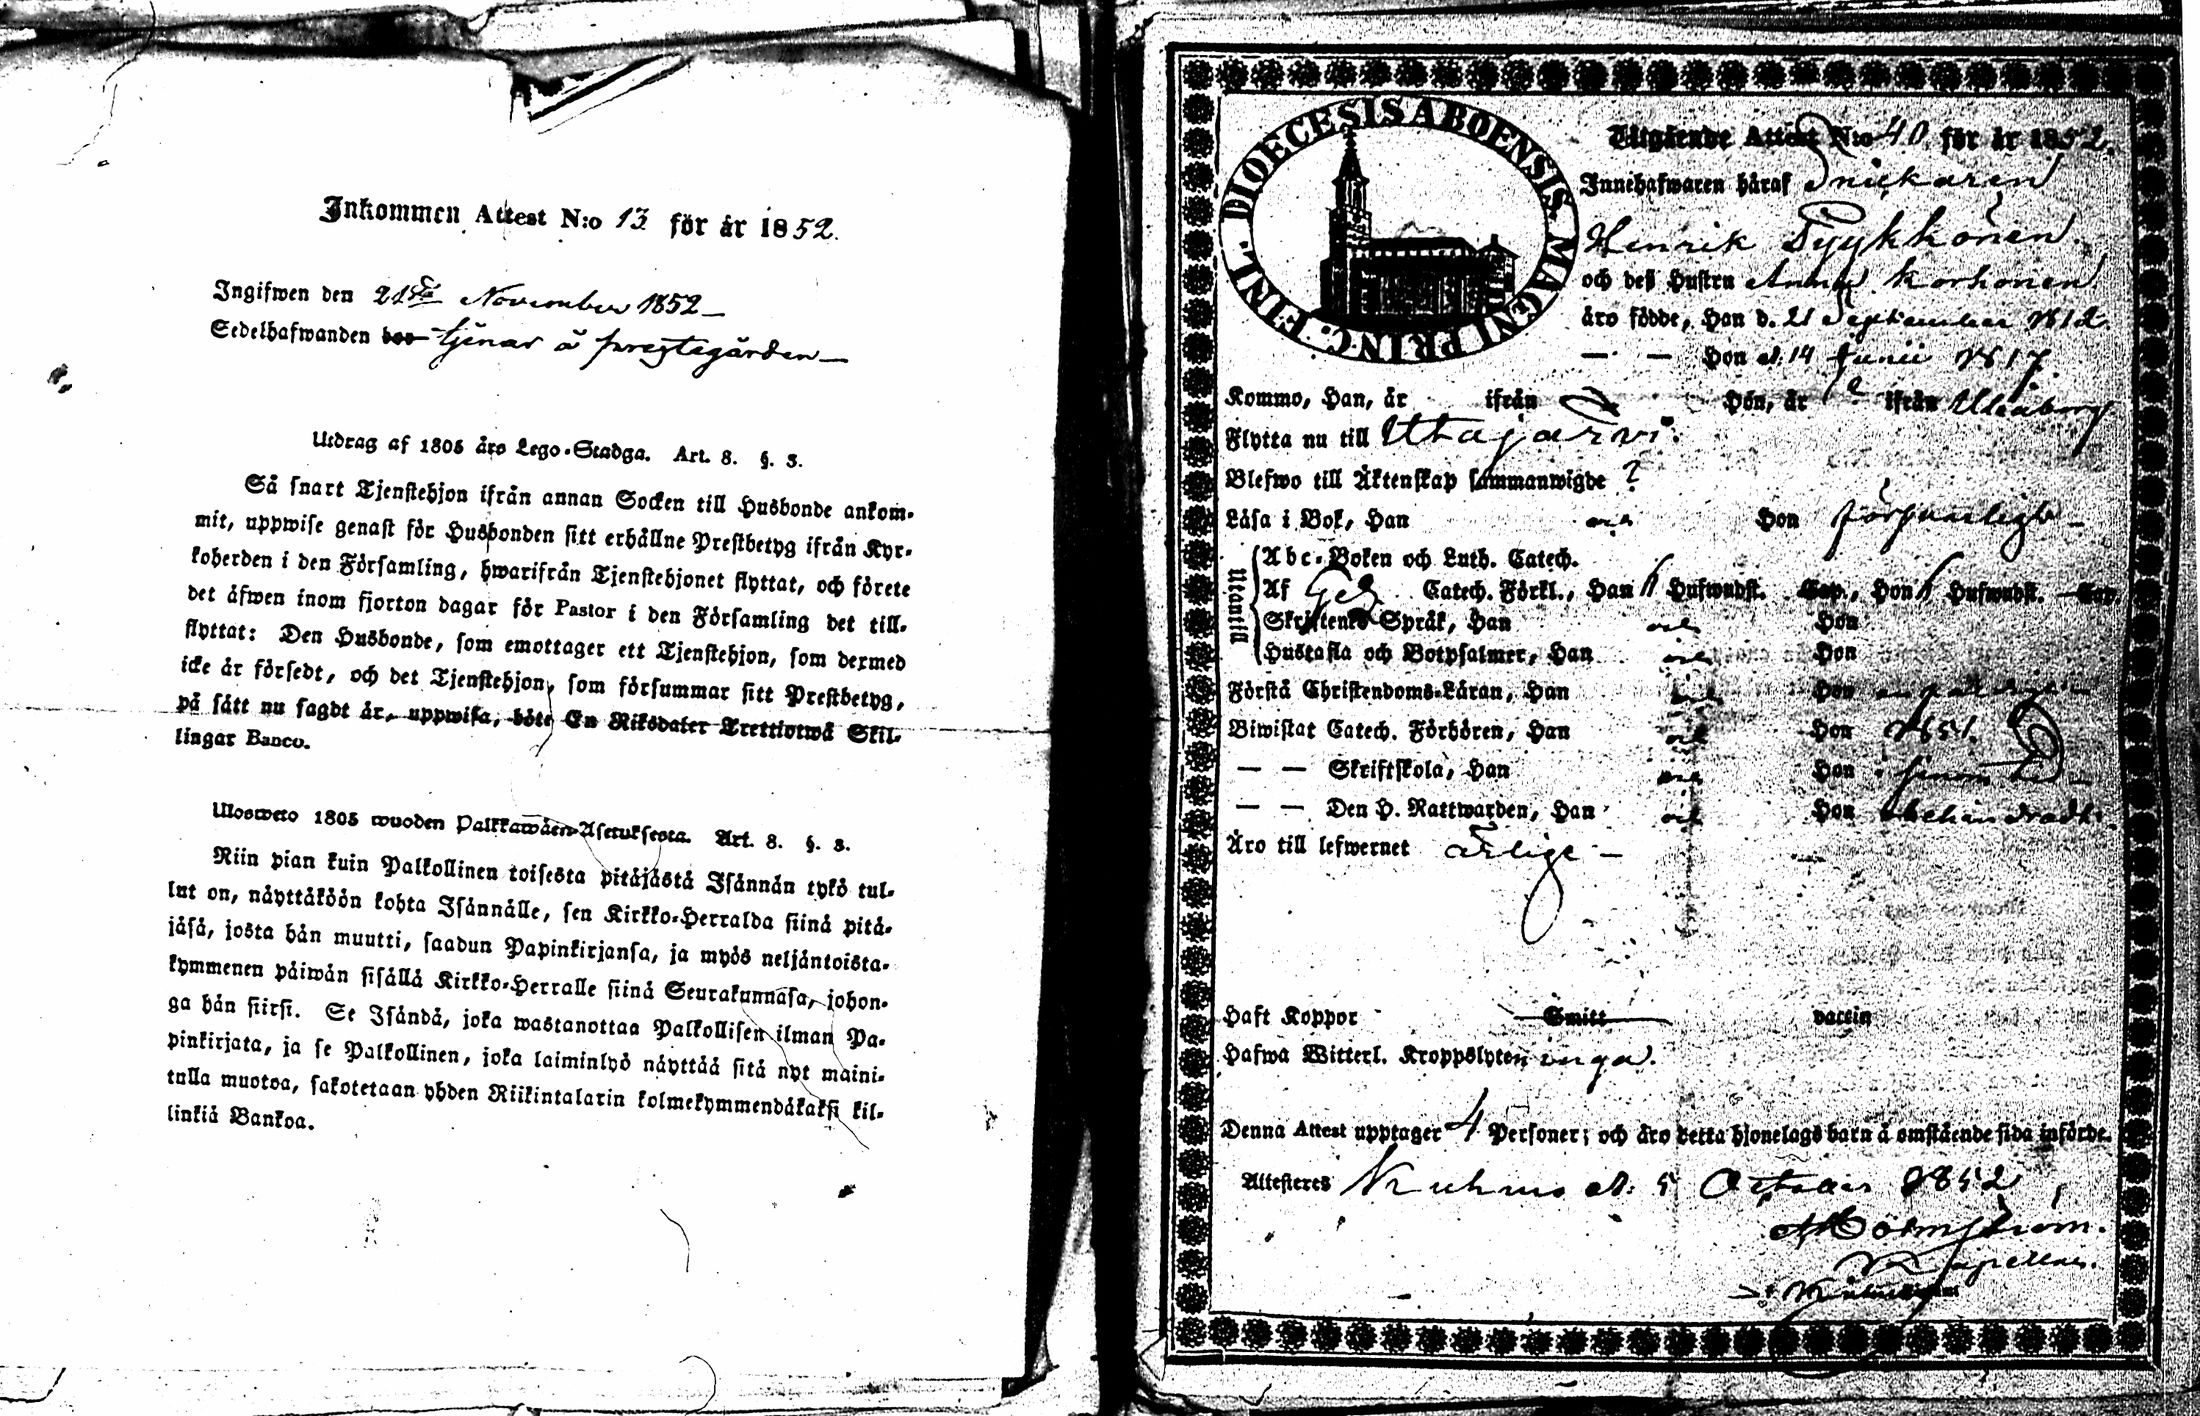 Inkommen Attest N:o 13 för år 1852.
Ingifwen den 21sta November 1852
Sedelhafwanden bor tjenar å prestegården
Utdrag af 1805 års Lego-Stadga. Art. 8. §. 3.
Så snart Tjenstehjon ifrån annan Socken till Husbonde ankom-
mit, uppwise genast för Husbonden sitt erhållne Prestbetyg ifrån Kyr-
koherden i den Församling, hwarifrån Tjenstehjonet flyttat, och förete
det äfwen inom fjorton dagar för Pastor i den Församling det till-
flyttat: Den Husbonde, som emottager ett Tjenstehjon, som dermed
icke är försedt, och det Tjenstehjon, som försummar sitt Prestbetyg,
på sätt nu sagdt är, uppwisa, böte En Riksdaler Trettiotwå Skil-
lingar Banco.
Ulosweto 1805 wuoden Palkkawäen-Asetuksesta. Art. 8. §. 3.
Niin pian kuin Palkollinen toisesta pitäjästä Isännän tykö tul-
lut on, näyttäköön kohta Isännälle, sen Kirkko-Herralda siinä pitä-
jäsä, josta hän muutti, saadun Papinkirjansa, ja myös neljäntoista-
kymmenen päiwän sisällä Kirkko-Herralle siinä Seurakunnasa, johon-
ga hän siirsi. Se Isändä, joka wastanottaa Palkollisen ilman Pa-
pinkirjata, ja se Palkollinen, joka laiminlyö näyttää sitä nyt maini-
tulla muotoa, sakotetaan yhden Riikintalarin kolmekymmendäkaksi kil-
linkiä Bankoa.
FINL. DIOECESIS ABOENSIS. MAGNI PRINC.
Utgående Attest N:o 40 för år 1852.
Innehafwaren häraf Snickaren
Henrik Tyykkönen
och deß Hustru Anna Korhonen
äro födde, Han d. 21 September 1812
— — Hon d. 14 Junii 1817.
Kommo, Han, år ifrån Hon, år ? ifrån Uleåborg
Flytta nu till Utajärvi.
Blefwo till Äktenskap sammanwigde ?
Läsa i Bok, Han och Hon försvarligt
Utantill
Abc-Boken och Luth. Catech.
Af Catech. Förkl., Han Hufwudst. Cap., Hon Hufwudst. Cap.
Skriftenes Språk, Han och Hon
Hustafla och Botpsalmer, Han och Hon
Förstå Christendoms-Läran, Han och Hon
Biwistat Catech. Förhören, Han och Hon 1851.
— — Skriftskola, Han och Hon
— — Den H. Nattwarden, Han och Hon obehindradt.
Äro till lefwernet ärlige
Haft Koppor Smitt vaccin
Hafwa Witterl. Kroppslyten inga.
Denna Attest upptager 4 Personer; och äro detta hjonelags barn å omstående sida införde.
Attesteres Kuhmo d. 5 October 1852
Holmström.
Kapellan.